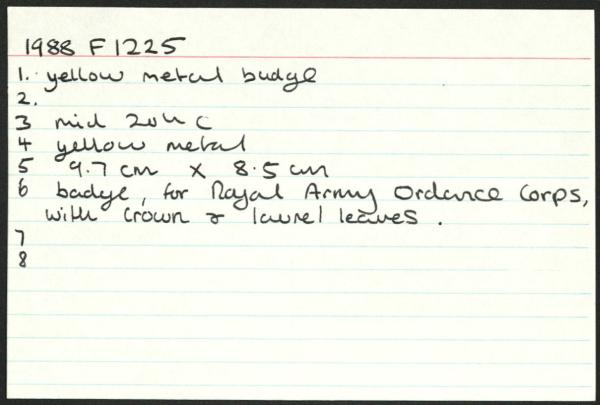 1988 F1225
1. yellow metal badge
2.
3 mid 20th C
4 yellow metal
5 9.7 cm x 8.5 cm
6 badge, for Royal Army Ordance Corps,
with crown & laurel leaves.
7
8